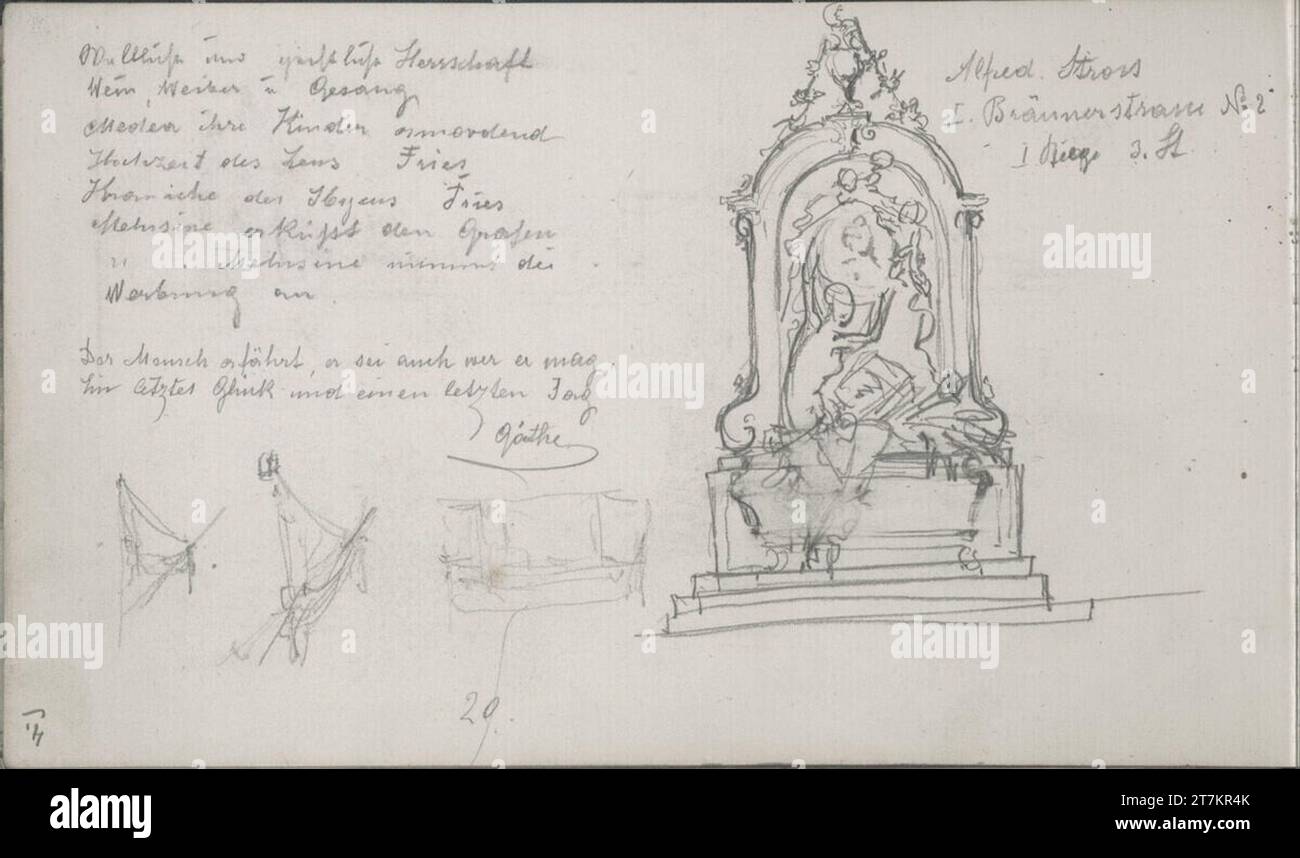 Weltliche und geistliche Herrschaft
Wein, Weiber u Gesang
Medea ihre Kinder ermordend
Hochzeit des Zeus Fries
des Fries
Melusine erküßt den Grafen
" Melusine nimmt die
Werbung an.
Der Mensch erfährt, er sei auch wer er mag
Ein letztes Glück und einen letzten Tag
Göthe
Alfred. Stross
I. Bräunerstrasse No. 2
I Stiege 3. St.
29.
alamy
alamy
alamy
alamy
alamy
alamy
alamy
alamy
Image ID: 2T7KR4K
www.alamy.com